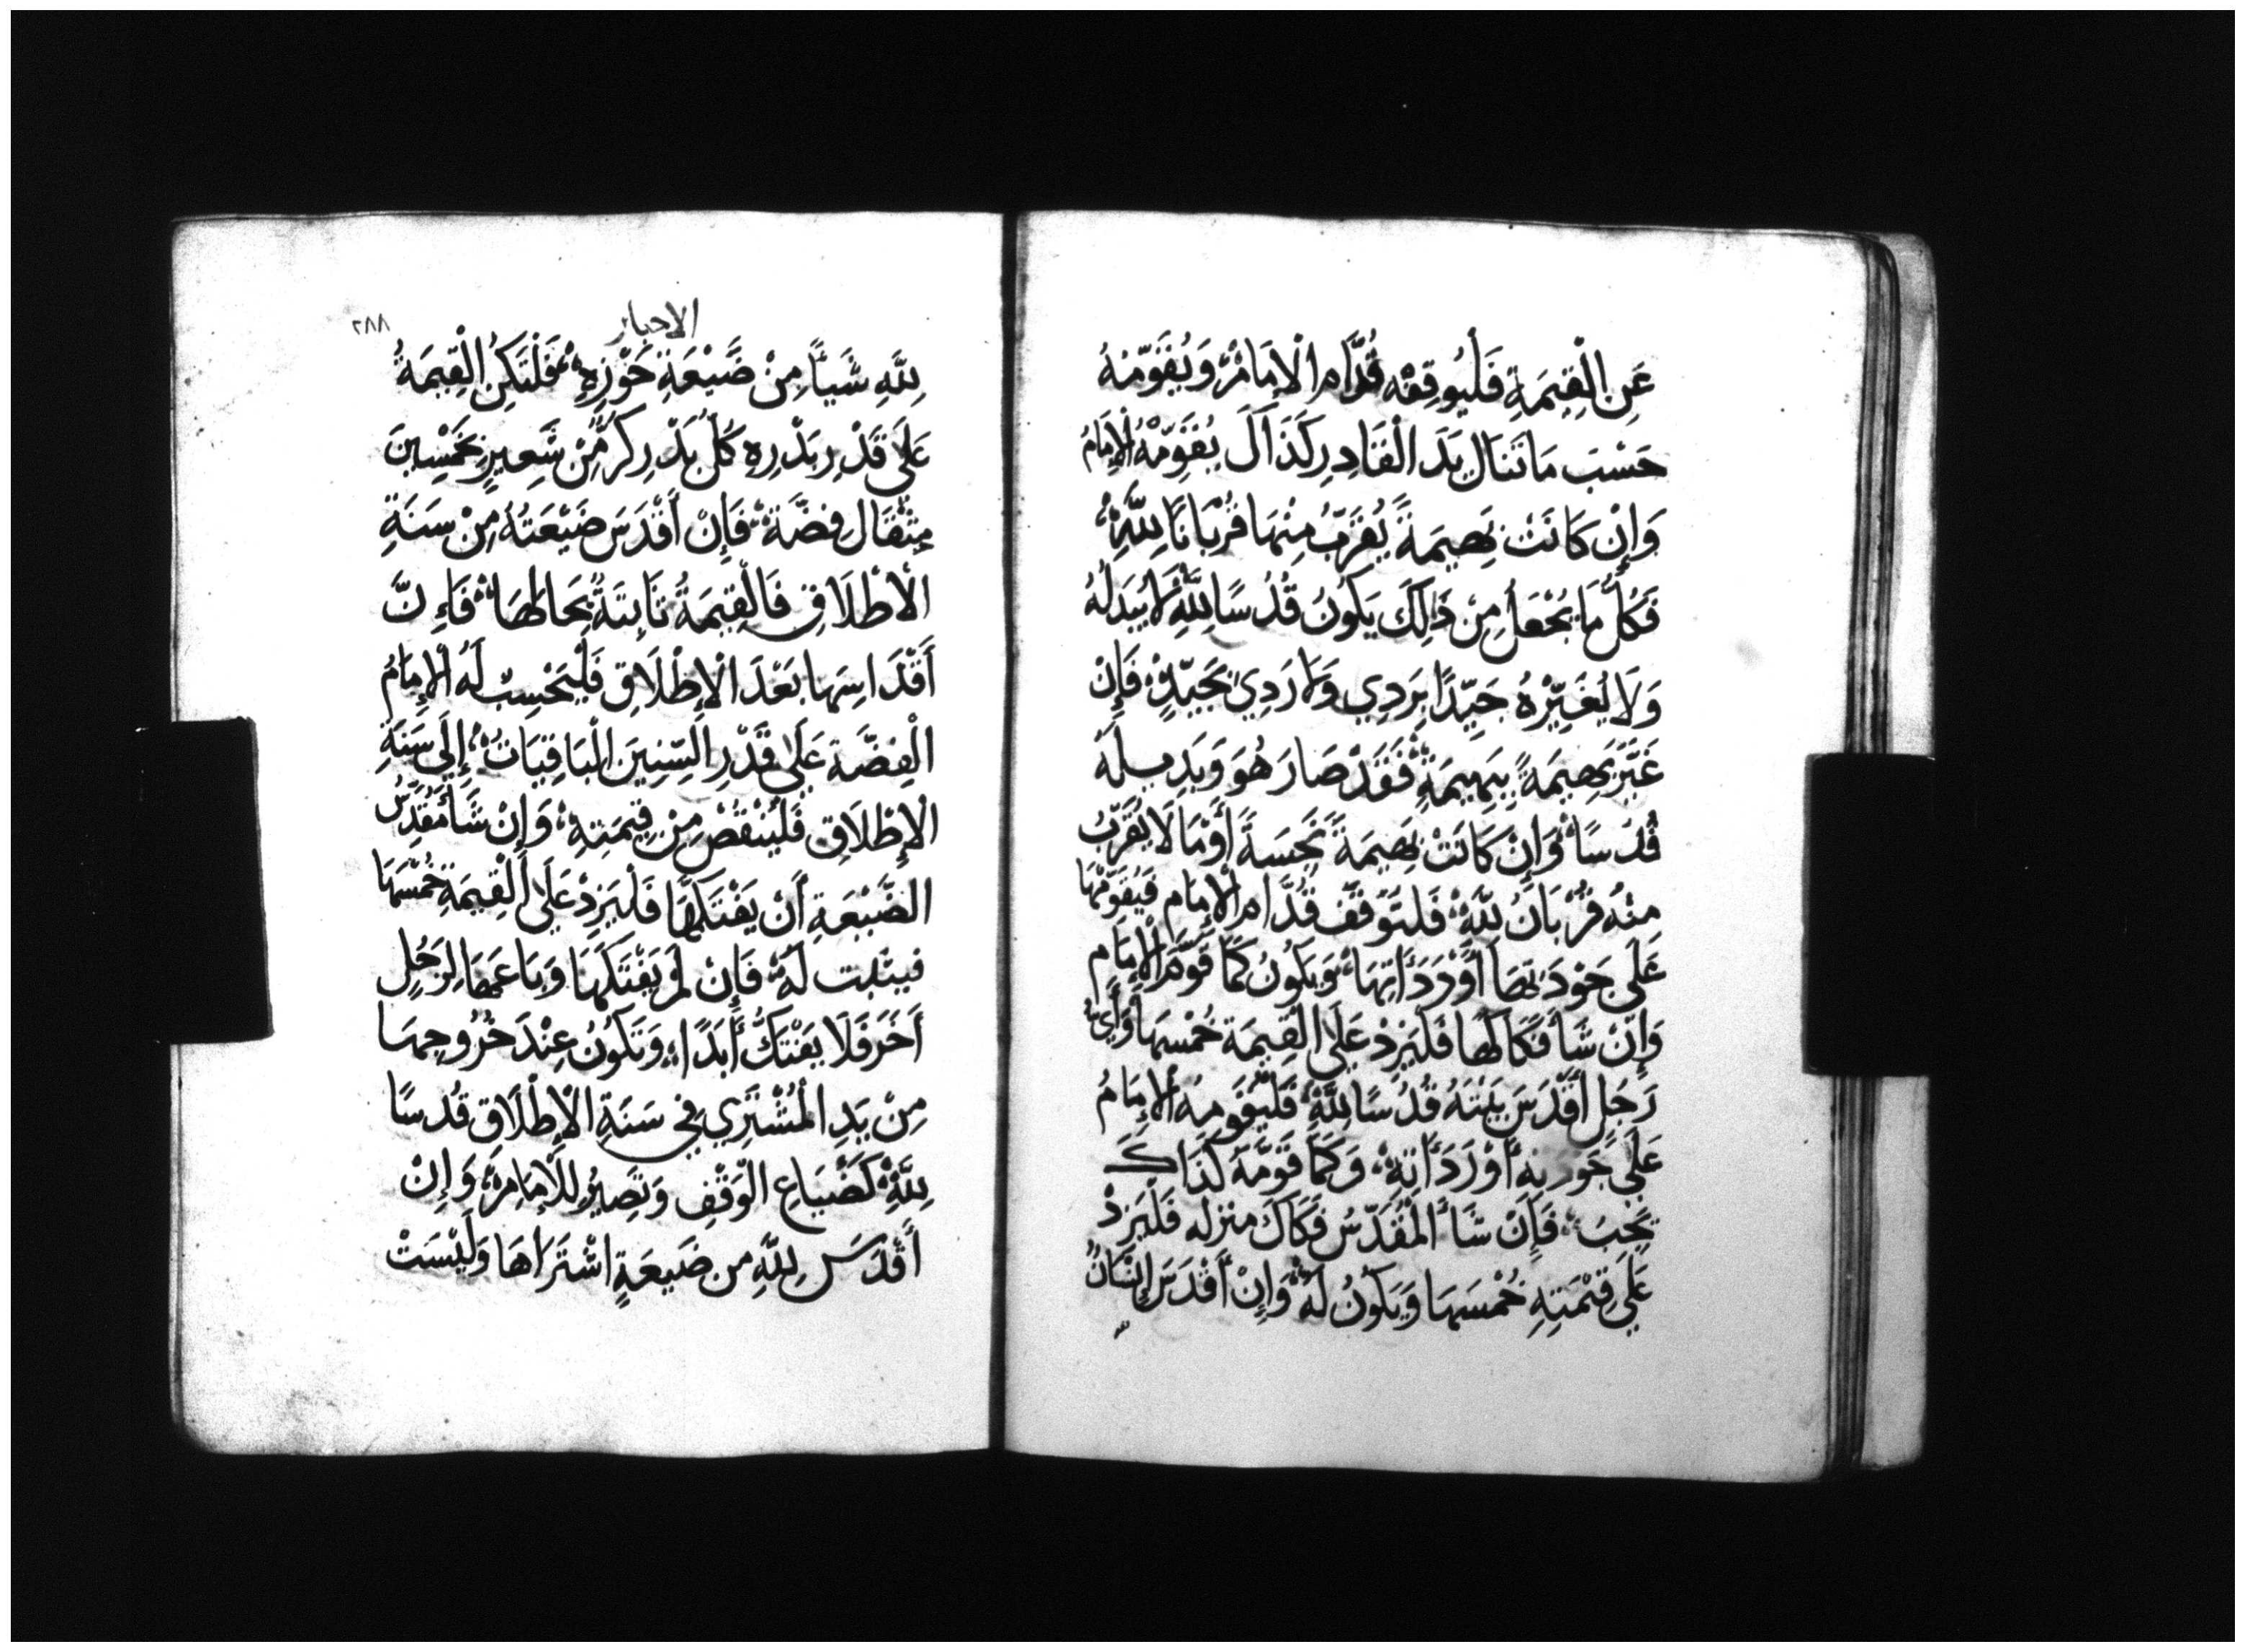 عَنِ الْقِيمَةِ فَلْيُوقِفْه قُدَّام الْإمَامْ وَيُقَوِّمْهُ
حَسْبَ مَا تَنَال يَدَ الْقَادِر كَذَاَلَ يُقَوِّمْهُ الْإِمَامُ
وَإِنْ كَانَتْ بَهِيمَةً يُقَرِّبُ مِنْهَا قُرْبَانًا لِلَّهِ
فَكُلُّ مَا يُجْعَلُ مِنْ ذَالِكَ يَكُونُ قُدْسًا لِلَّهِ لَا يُبَدِلْهُ
وَلَا يُغَيِّرْهُ جَيِّدًا بِرَدِي وَلَا رَدِيْ بِجَيِّدٍ فَإِنْ
غَيَّرَ بَهِيمَةً بِبَهِيمَةٍ فَقَدْ صَارَ هُوَ وَبَدِيلَهُ
قُدْسًا وَإِنْ كَانَتْ بَهِيمَةً نَجِسَةً أَوْمَا لَا يُقَرَّبُ
مِنْهُ قُرْبَانُ لِلَّهِ فَلتُوقَفْ قُدَّام الْإِمَام فَيُقَوِّمْهَا
عَلَى جَوْدَتهَا أَوْ رَدَأَتِهَا وَيَكُونُ كَمَا قَوَّمَ الْإِمَام
وَإِنْ شَأَ فَكَاكَهَا فَلْيَزِدْ عَلَى الْقِيمَةِ خُمْسَهَا وَأَيُّ
رَجُلٍ أَقْدَسَ بَيْتَهُ قُدْسًا لِلَّهِ فَلْيُقَوِمهُ الْإِمَامُ
عَلَى جَوْدته أَوْ رَدَأَتِهِ وَكَمَا قَوَّمَهُ كَذَاكَ
يَجِبُ فَإِنْ شَأَ الْمُقَدِّسُ فَكَاكَ منزله فَلْيَزِدْ
عَلَى قِيْمَتِهِ خُمْسَهَا وَيَكُونُ لَهُ وَإِنْ أَقْدَسَ إِنْسَانٌ
الاحبار
٢٨٨
لِلَّهِ شَيأً مِنْ ضَيْعَةِ حَوْزِهِ فَلْتَكُنِ الْقِيمَةُ
عَلَى قَدْرِ بَذْرِه كُلُّ بَذْرِ كُرٍّ مِّنْ شَعِيرٍ بِخَمْسِينَ
مِثْقَال فِضَّة فَإِنْ أَقْدَسَ ضَيْعَتُهُ مِنْ سَنَةِ
الْأطْلَاقِ فَالْقِيمَةُ ثَابِتَةٌ بِحَالِهَا فَاءِنَّ
أَقْدَاسِهَا بَعْدَ الْإِطْلَاقِ فَلْيَحْسِبْ لَهُ الْإِمَامُ
الْفِضَّة عَلَى قَدْرِ السِّنِينَ الْبَاقِيَاتْ إِلَى سَنَةِ
الْإِطْلَاقِ فَلْيَنْقُصْ مِنْ قِيمَتِهِ وَإِنْ شَأَ مُقَدِّسُ
الضَّيْعَةِ أَنْ يَفْتَكَّهَا فَلْيَزِدْ عَلَى الْقِيمَةِ خُمْسَهَا
فيثبت لَهُ فَإِنْ لَمْ يَفْتَكَهَا وَبَاعَهَا لِرَجُلٍ
أَخَرَ فَلَا يَفْتَكُّ أَبَدًا وَتَكُونُ عِنْدَ خُرُوجِهَا
مِنْ يَدِ الْمُشْتَرِي فِي سَنَةِ الْإِطْلَاقِ قُدسًا
لِلَّهِ كَضْيَاعِ الْوَقْفِ وَتَصِيرُ لِلْإِمَامِ وَإِنْ
أَقْدَسَ لِلَّهِ من ضَيعَةٍ اشْتَرَاهَا وَلَيْسَتْ